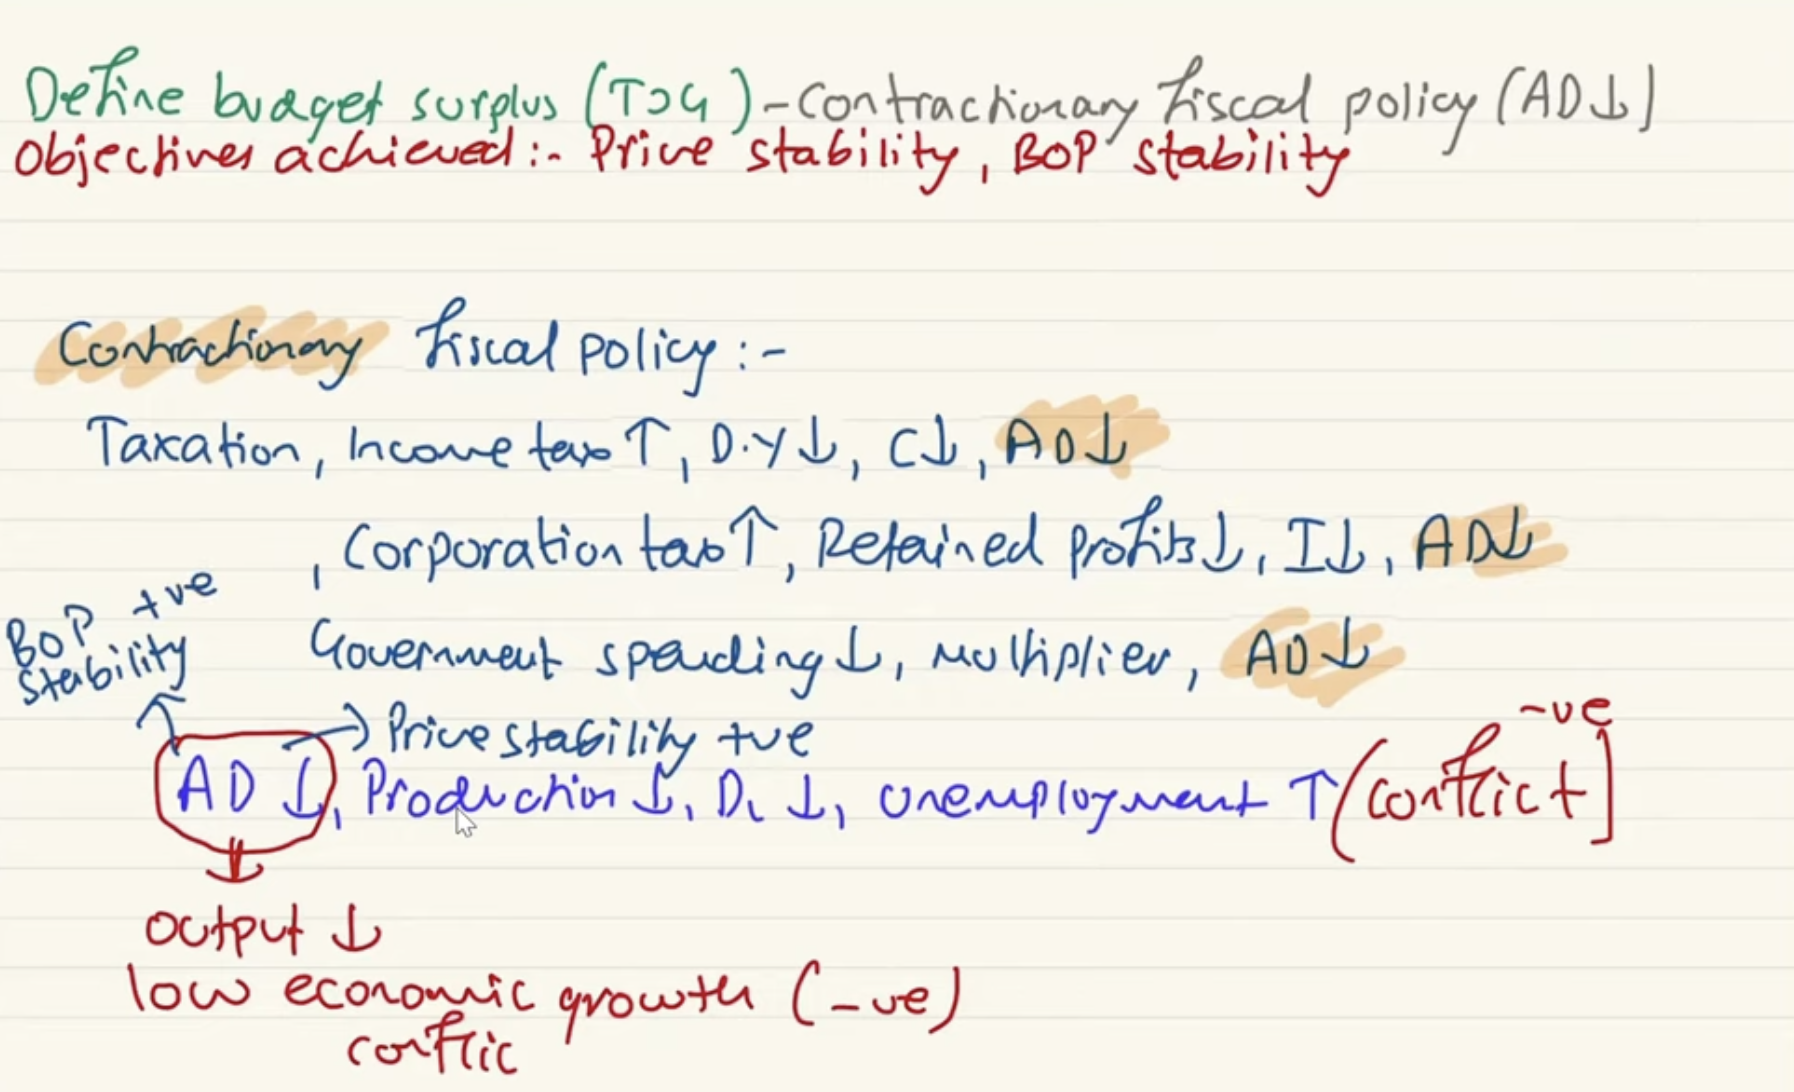 Define budget surplus (T>G) - Contractionary fiscal policy (AD↓)
Objectives achieved:- Price stability, BOP stability
Contractionary fiscal policy:-
Taxation, Income tax↑, D.Y↓, C↓, AD↓
, Corporation tax↑, Retained profits↓, I↓, AD↓
Government spending↓, multiplier, AD↓
BOP +ve
stability
→ Price stability +ve
AD↓, Production↓, DL↓, unemployment ↑ (conflict) -ve
output ↓
low economic growth (-ve)
conflic